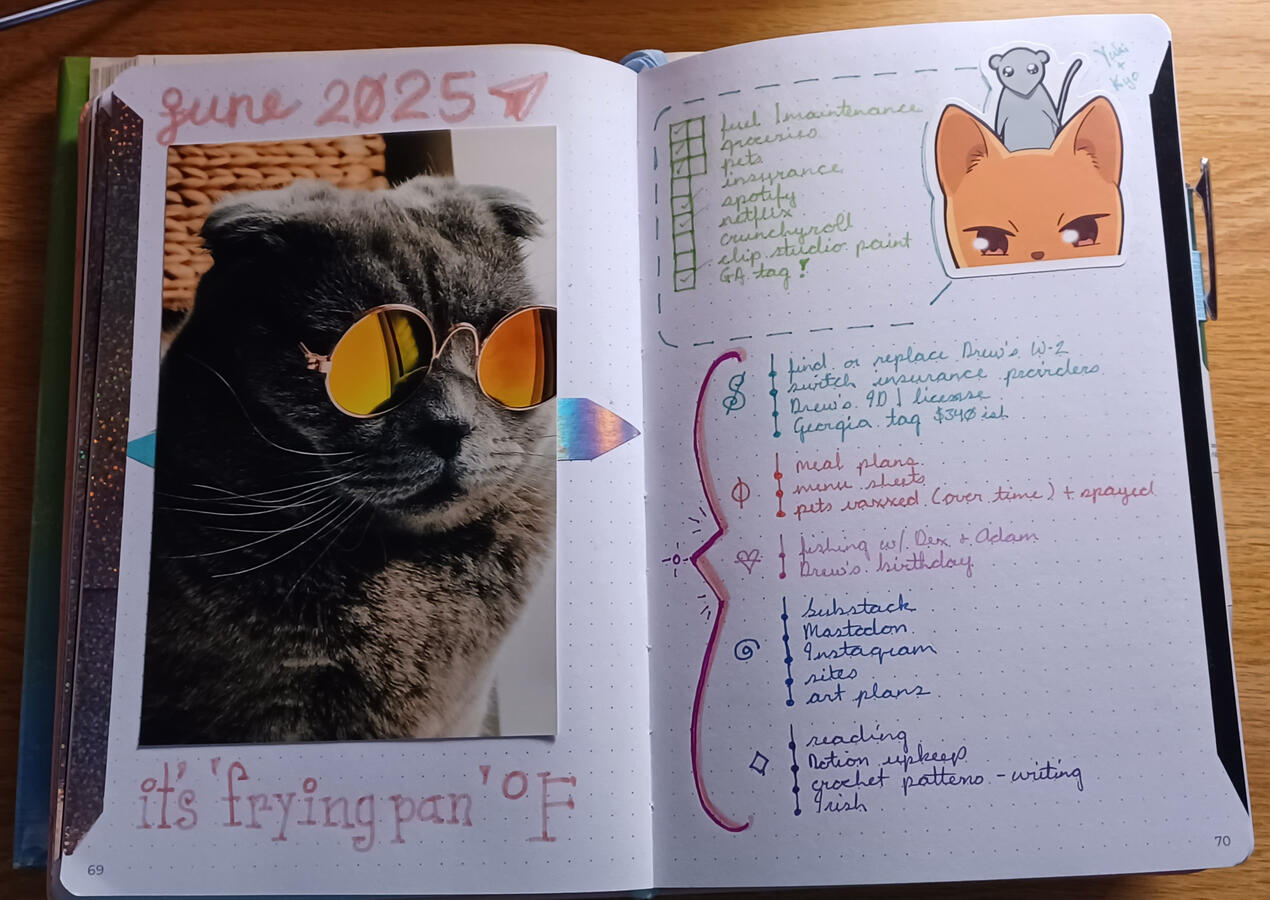 june 2025
it's 'frying pan' °F
69
Yuki
+
Kyo
fuel | maintenance
groceries
pets
insurance
spotify
netflix
crunchyroll
clip studio paint
GA tag !
$
find or replace Drew's W-2
switch insurance providers
Drew's ID | license
Georgia tag $340 ish
meal plans
menu sheets
pets vaxxed (over time) + spayed
fishing w/ Dex & Adam
Drew's birthday
substack
Mastodon
Instagram
sites
art plans
reading
Notion upkeep
crochet patterns - writing
Irish
70